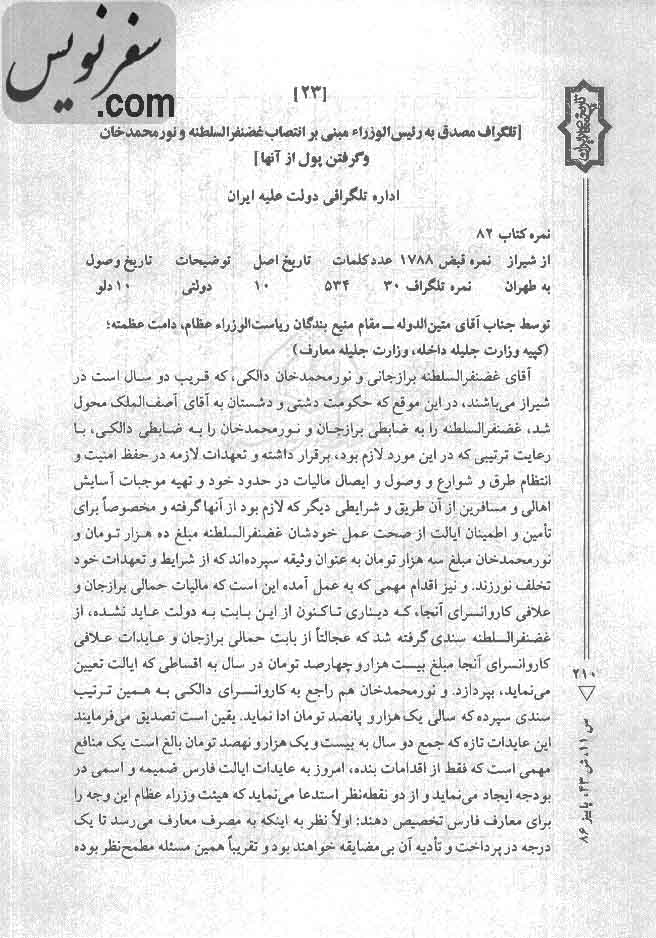 سفرنویس
.com
[۲۳]
[تلگراف مصدق به رئیس‌الوزراء مبنی بر انتصاب غضنفرالسلطنه و نورمحمدخان
و گرفتن پول از آنها]
اداره تلگرافی دولت علیه ایران
نمره کتاب ۸۲
از شیراز نمره قبض ۱۷۸۸ عدد کلمات تاریخ اصل توضیحات تاریخ وصول
به طهران نمره تلگراف ۳۰ ۵۳۴ ۱۰ دولتی ۱۰ دلو
توسط جناب آقای متین‌الدوله ــ مقام منیع بندگان ریاست‌الوزراء عظام، دامت عظمته؛
(کپیه وزارت جلیله داخله، وزارت جلیله معارف)
آقای غضنفرالسلطنه برازجانی و نورمحمدخان دالکی، که قریب دو سال است در
شیراز می‌باشند، در این موقع که حکومت دشتی و دشتستان به آقای آصف‌الملک محول
شد، غضنفرالسلطنه را به ضابطی برازجان و نورمحمدخان را به ضابطی دالکی، با
رعایت ترتیبی که در این مورد لازم بود، برقرار داشته و تعهدات لازمه در حفظ امنیت و
انتظام طرق و شوارع و وصول و ایصال مالیات در حدود خود و تهیه موجبات آسایش
اهالی و مسافرین از آن طریق و شرایطی دیگر که لازم بود از آنها گرفته و مخصوصاً برای
تأمین و اطمینان ایالت از صحت عمل خودشان غضنفرالسلطنه مبلغ ده هزار تومان و
نورمحمدخان مبلغ سه هزار تومان به عنوان وثیقه سپرده‌اند که از شرایط و تعهدات خود
تخلف نورزند. و نیز اقدام مهمی که به عمل آمده این است که مالیات حمالی برازجان و
علافی کاروانسرای آنجا، که دیناری تاکنون از این بابت به دولت عاید نشده، از
غضنفرالسلطنه سندی گرفته شد که عجالتاً از بابت حمالی برازجان و عایدات علافی
کاروانسرای آنجا مبلغ بیست هزار و چهارصد تومان در سال به اقساطی که ایالت تعیین
می‌نماید، بپردازد. و نورمحمدخان هم راجع به کاروانسرای دالکی به همین ترتیب
سندی سپرده که سالی یک هزار و پانصد تومان ادا نماید. یقین است تصدیق می‌فرمایند
این عایدات تازه که جمع دو سال به بیست و یک هزار و نهصد تومان بالغ است یک منافع
مهمی است که فقط از اقدامات بنده، امروز به عایدات ایالت فارس ضمیمه و اسمی در
بودجه ایجاد می‌نماید و از دو نقطه‌نظر استدعا می‌نماید که هیئت وزراء عظام این وجه را
برای معارف فارس تخصیص دهند: اولاً نظر به اینکه به مصرف معارف می‌رسد تا یک
درجه در پرداخت و تأدیه آن بی‌مضایقه خواهند بود و تقریباً همین مسئله مطمح‌نظر بوده
۲۱۰
س ۱۱، ش ۴۳، پاییز ۸۶